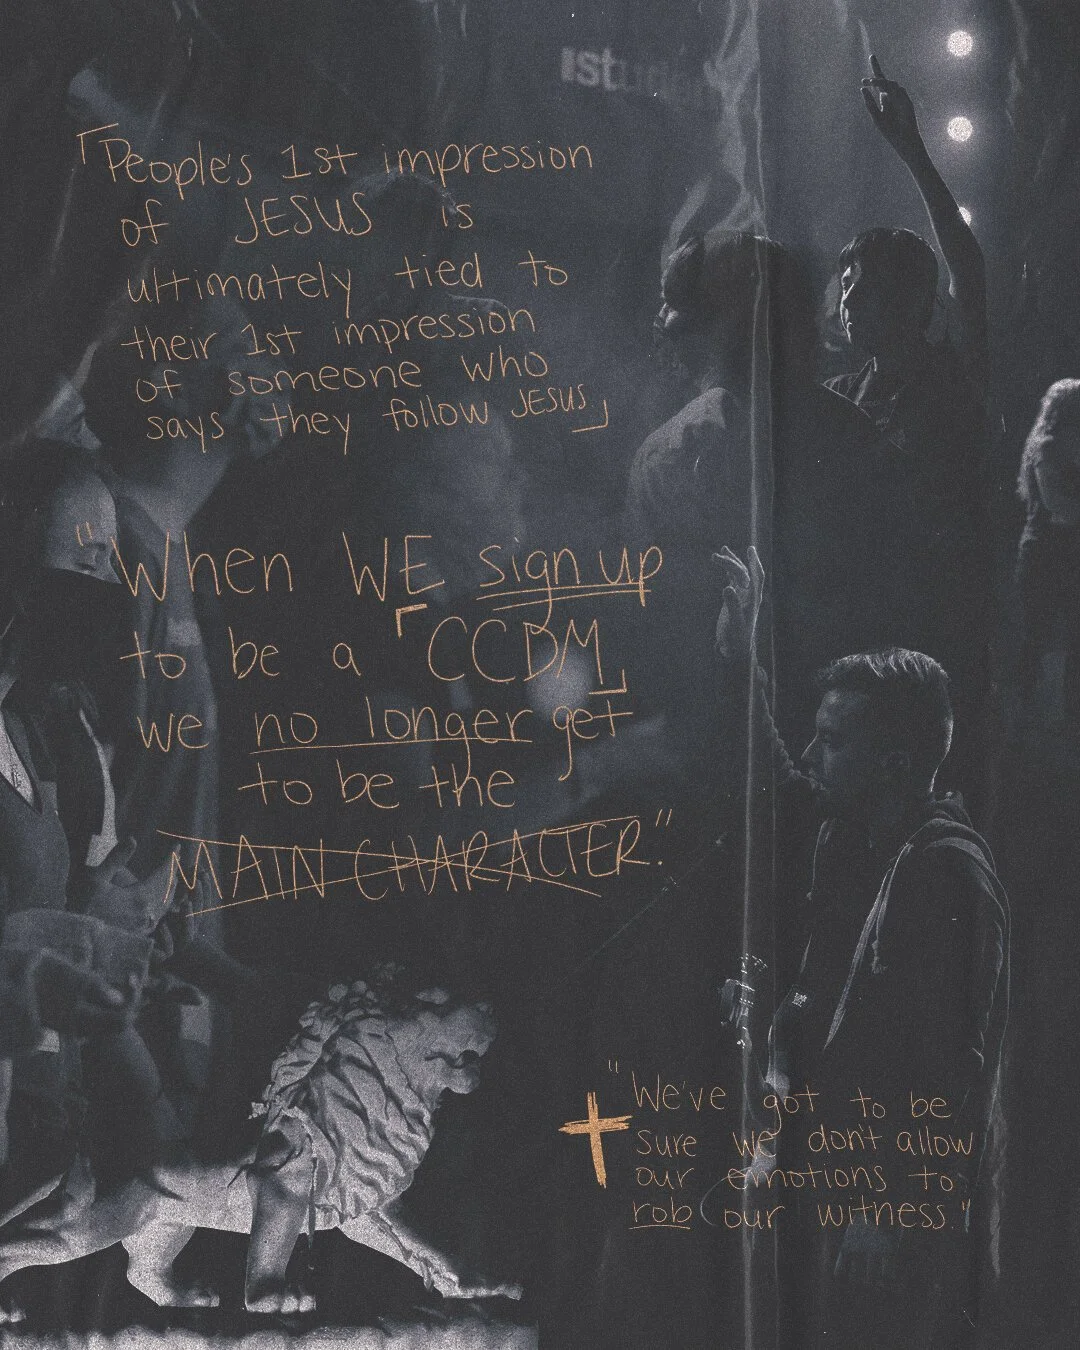 「People's 1st impression
of JESUS is
ultimately tied to
their 1st impression
of someone who
says they follow JESUS」
"When WE sign up
to be a「CCDM」
we no longer get
to be the
MAIN CHARACTER."
"We've got to be
sure we don't allow
our emotions to
rob our witness."